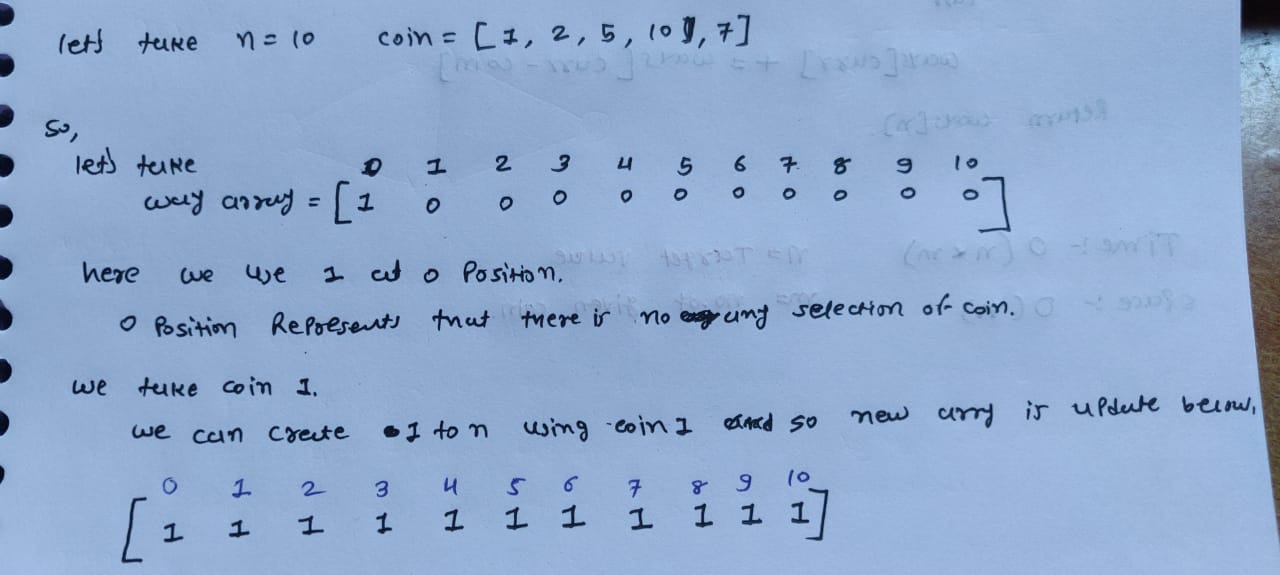 let's take n = 10 coin = [1, 2, 5, 10, 7]
so,
let's take 0 1 2 3 4 5 6 7 8 9 10
way array = [1 0 0 0 0 0 0 0 0 0 0]
here we use 1 at 0 Position.
0 Position Represents that there is no any selection of coin.
we take coin 1.
we can create 1 to n using coin 1 and so new arry is update below,
0 1 2 3 4 5 6 7 8 9 10
[1 1 1 1 1 1 1 1 1 1 1]